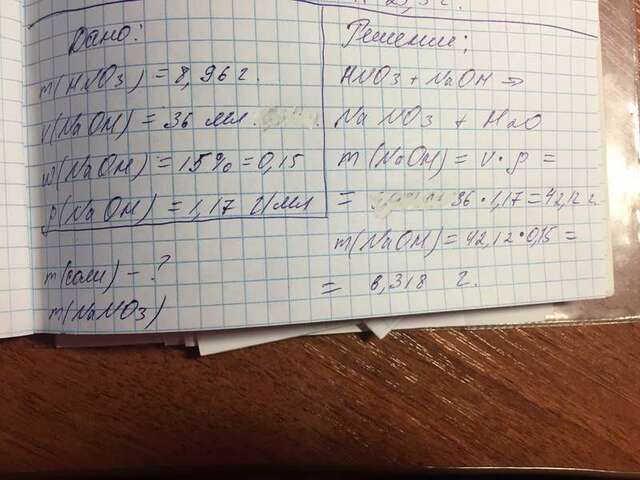 Дано:
m(HNO3) = 8,96 г.
V(NaOH) = 36 мл.
ω(NaOH) = 15% = 0,15
ρ(NaOH) = 1,17 г/мл
m(соли) - ?
m(NaNO3)
Решение:
HNO3 + NaOH →
NaNO3 + H2O
m(NaOH) = V·ρ =
= 36·1,17 = 42,12 г.
m(NaOH) = 42,12·0,15 =
= 6,318 г.